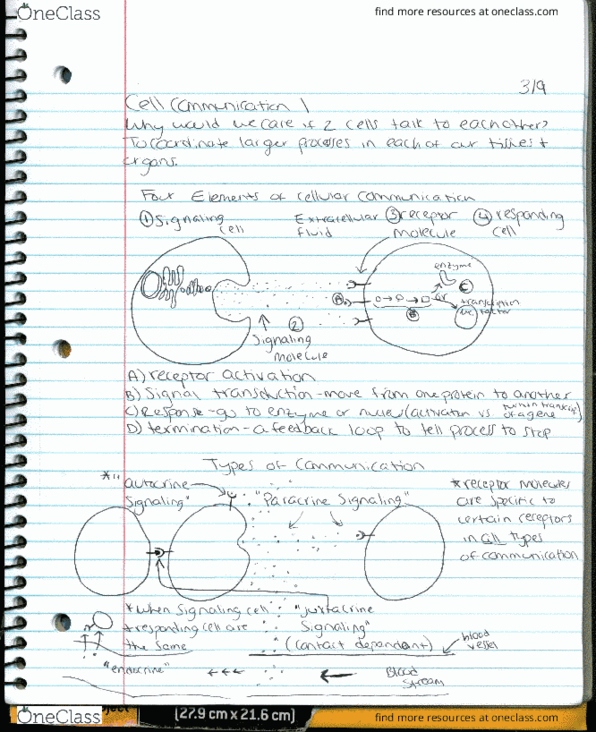 OneClass
find more resources at oneclass.com
3/9
Cell Communication 1
Why would we care if 2 cells talk to eachother?
To coordinate larger processes in each of our tissues +
organs.
Four Elements of cellular communication
① Signaling cell
Extracellular Fluid
③ receptor molecule
④ responding cell
enzyme
A
C
or
transcription
B
② Signaling molecule
A) receptor activation
B) Signal transduction - move from one protein to another
C) Response - go to enzyme or nuclei (activation vs
of a gene
D) termination - a feedback loop to tell process to stop
Types of Communication
*" autocrine Signaling"
"Paracrine Signaling"
* receptor molecules
are specific to
certain receptors
in all types
of communication
* when Signaling cell
+ responding cell are
the same
"juxtacrine
Signaling"
(contact dependant)
blood vessel
"endocrine"
Blood Stream
OneClass
(27.9 cm x 21.6 cm)
find more resources at oneclass.com